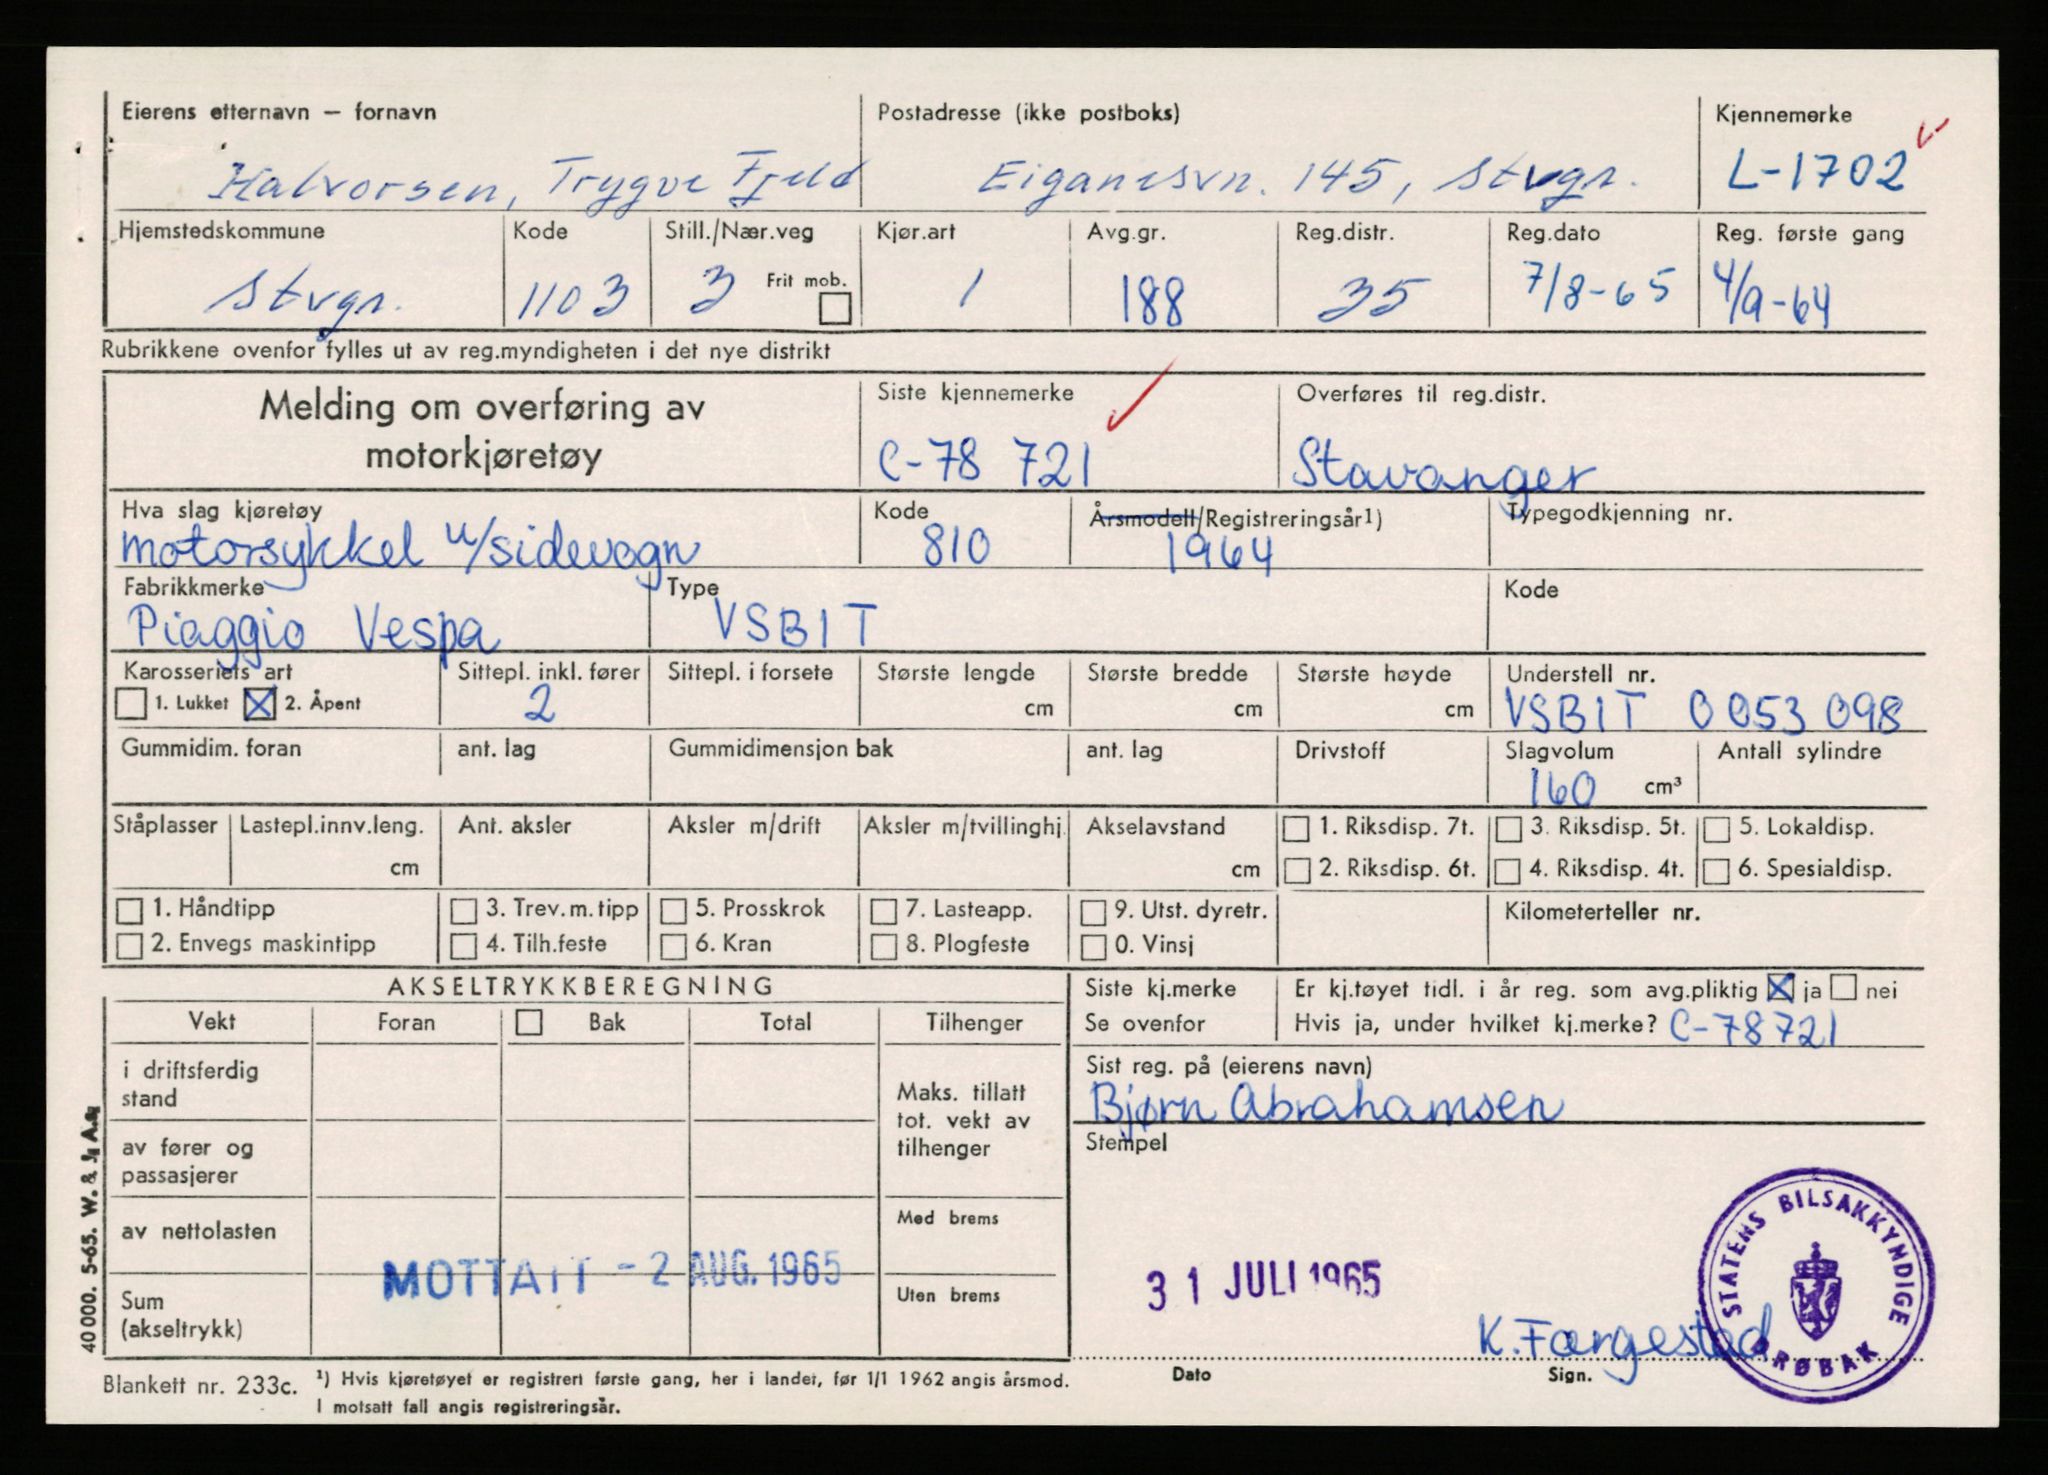 Eierens etternavn — fornavn Postadresse (ikke postboks) Kjennemerke
Halvorsen, Trygve Fjeld Eiganesvn. 145, Stvgr. L-1702
Hjemstedskommune Kode Still./Nær.veg Kjør.art Avg.gr. Reg.distr. Reg.dato Reg. første gang
Stvgr. 1103 3 Frit mob. 1 188 35 7/8-65 4/9-64
Rubrikkene ovenfor fylles ut av reg.myndigheten i det nye distrikt
Melding om overføring av Siste kjennemerke Overføres til reg.distr.
motorkjøretøy C-78 721 Stavanger
Hva slag kjøretøy Kode Årsmodell/Registreringsår1) Typegodkjenning nr.
motorsykkel u/sidevogn 810 1964
Fabrikkmerke Type Kode
Piaggio Vespa VSB1T
Karosseriets art Sittepl. inkl. fører Sittepl. i forsete Største lengde Største bredde Største høyde Understell nr.
1. Lukket 2. Åpent 2 cm cm cm VSB1T 0053098
Gummidim. foran ant. lag Gummidimensjon bak ant. lag Drivstoff Slagvolum Antall sylindre
160 cm³
Ståplasser Lastepl.innv.leng. Ant. aksler Aksler m/drift Aksler m/tvillinghj. Akselavstand 1. Riksdisp. 7t. 3. Riksdisp. 5t. 5. Lokaldisp.
cm cm 2. Riksdisp. 6t. 4. Riksdisp. 4t. 6. Spesialdisp.
1. Håndtipp 3. Trev.m.tipp 5. Prosskrok 7. Lasteapp. 9. Utst. dyretr. Kilometerteller nr.
2. Envegs maskintipp 4. Tilh.feste 6. Kran 8. Plogfeste 0. Vinsj
AKSELTRYKKBEREGNING Siste kj.merke Er kj.tøyet tidl. i år reg. som avg.pliktig ja nei
Vekt Foran Bak Total Tilhenger Se ovenfor Hvis ja, under hvilket kj.merke? C-78721
i driftsferdig Sist reg. på (eierens navn)
stand Maks. tillatt Bjørn Abrahamsen
tot. vekt av
av fører og tilhenger Stempel
passasjerer
av nettolasten Med brems
MOTTATT - 2 AUG. 1965 31 JULI 1965
STATENS BILSAKKYNDIGE DRØBAK
Sum Uten brems
(akseltrykk) K. Færgestad
Dato Sign.
Blankett nr. 233c. ¹) Hvis kjøretøyet er registrert første gang, her i landet, før 1/1 1962 angis årsmod.
I motsatt fall angis registreringsår.
40000. 5-65. W. &